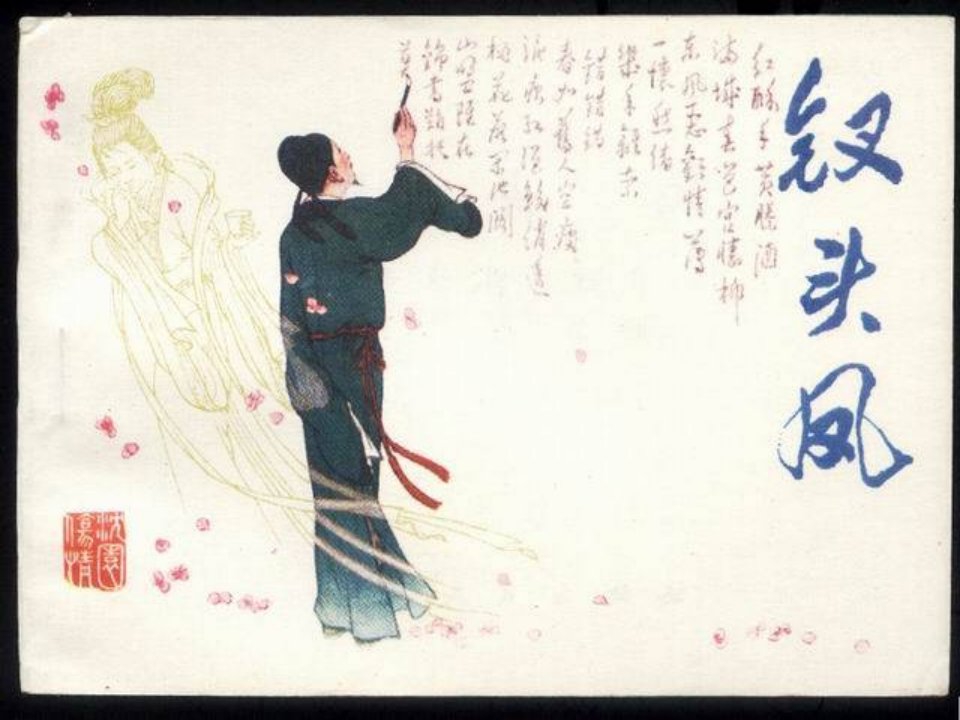 钗头凤
红酥手黄縢酒
满城春色宫墙柳
东风恶歡情薄
一懷愁绪
幾年離索
错错错
春如舊人空瘦
泪痕红浥鲛绡透
桃花落閒池阁
山盟雖在
錦書難托
莫
沈園
傷情